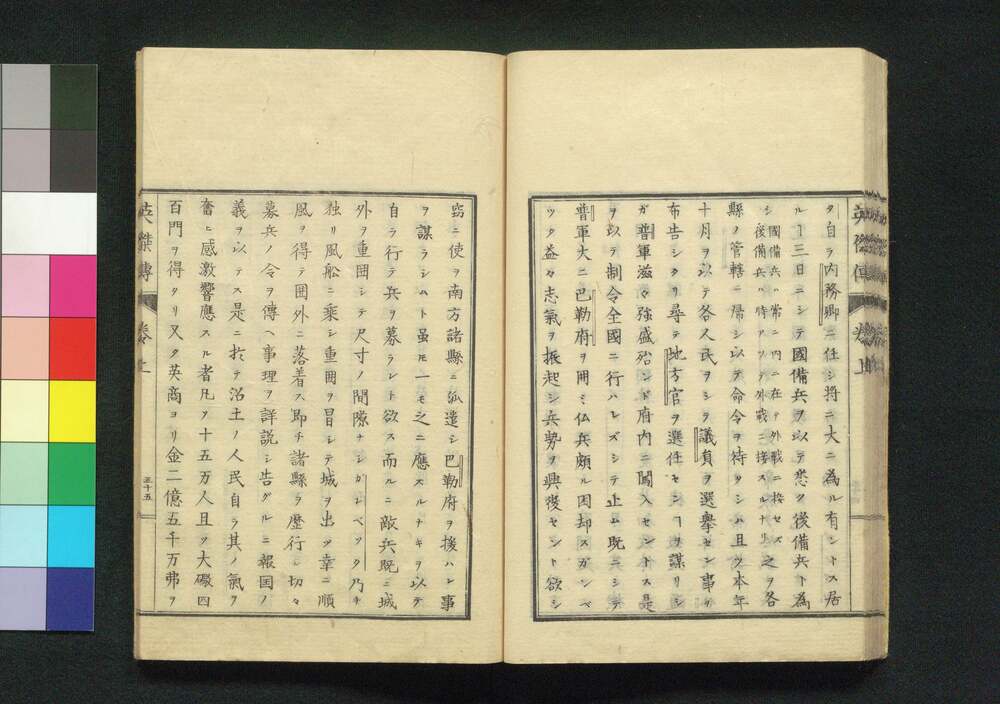 タ自ラ内務卿ニ任シ将ニ大ニ為ル有ントス居
ルヿ三日ニシテ國備兵ヲ以テ悉ク後備兵ト為
シ國備兵ハ常ニ内ニ在テ外戦ニ接セズ
後備兵ハ時アツテ外戦ニ接スルナリ之ヲ各
縣ノ管轄ニ帰シ以テ命令ヲ待タシハ且ツ本年
十月ヲ以テ各人民ヲシテ議員ヲ選擧セン事ヲ
布告シタリ尋テ地方官ヲ選任センヿヲ謀リシ
ガ普軍滋々強盛殆ンド府内ニ闖入セントス是
ヲ以テ制令全國ニ行ハレズシテ止ム既ニシテ
普軍大ニ巴勒府ヲ囲ミ仏兵頗ル困却スガンベ
ツタ益々志氣ヲ振起シ兵勢ヲ興復セント欲シ
窃ニ使ヲ南方諸縣ニ派遣シ巴勒府ヲ援ハレ事
ヲ謀ラシムト虽𪜈一モ之ニ應スルナキヲ以テ
自ラ行テ兵ヲ募ラレト欲ス而ルニ敵兵既ニ城
外ヲ重囲シテ尺寸ノ間隙ナシガンベツタ乃チ
独リ風船ニ乘シ重囲ヲ冒シテ城ヲ出ツ幸ニ順
風ヲ得テ囲外ニ落着ス即チ諸縣ヲ歴行シ切々
募兵ノ令ヲ傳ヘ事理ヲ詳説シ告グルニ報国ノ
義ヲ以テス是ニ於テ沼土ノ人民自ラ其ノ氣ヲ
奮ヒ感激響應スル者凡ソ十五万人且ツ大礟四
百門ヲ得タリ又タ英商ヨリ金二億五千万弗ヲ
英傑傳
巻上
三十五